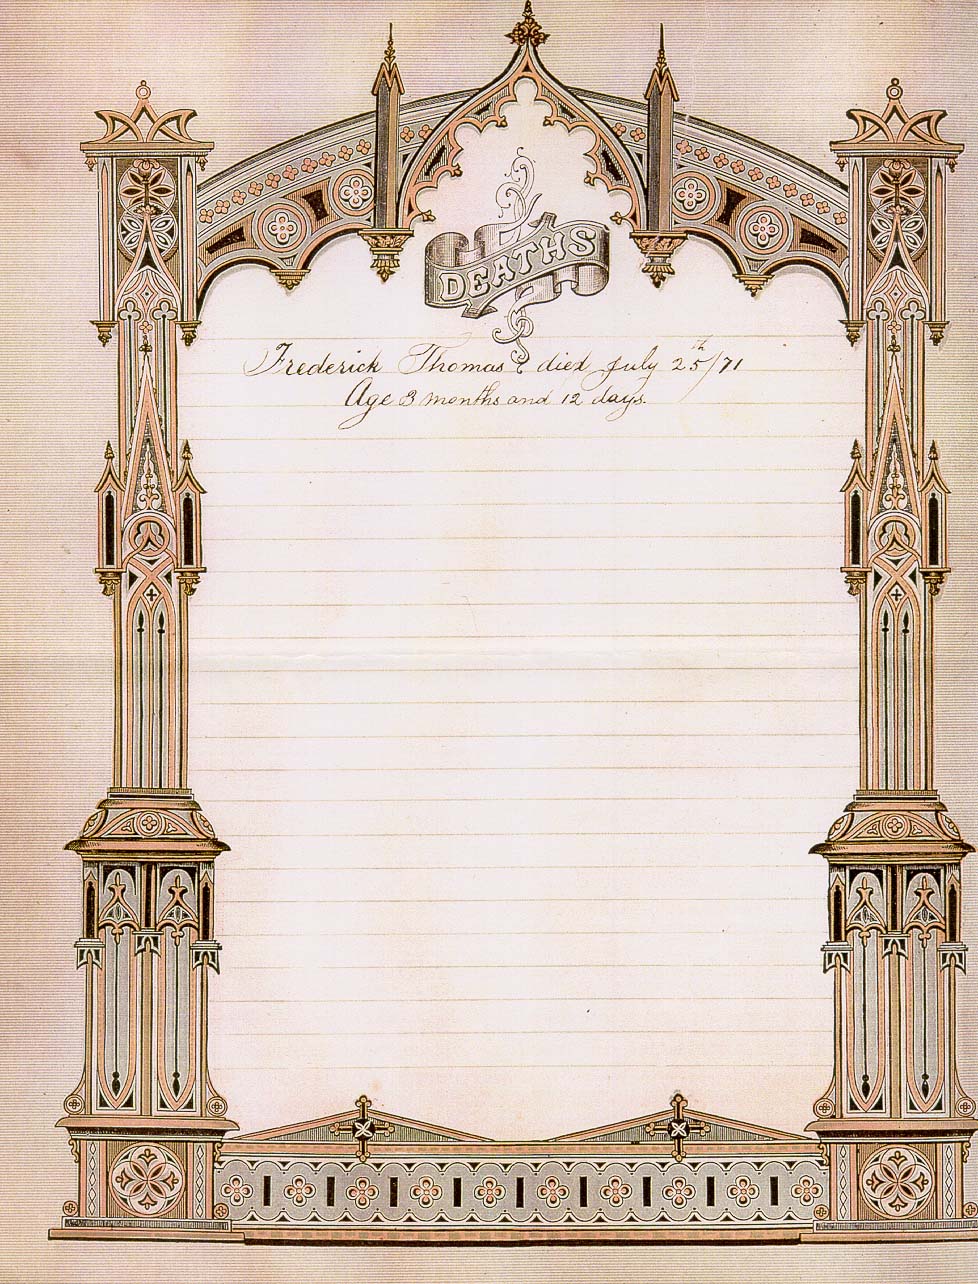 DEATHS
Frederick Thomas died July 25th/71
Age 3 months and 12 days.